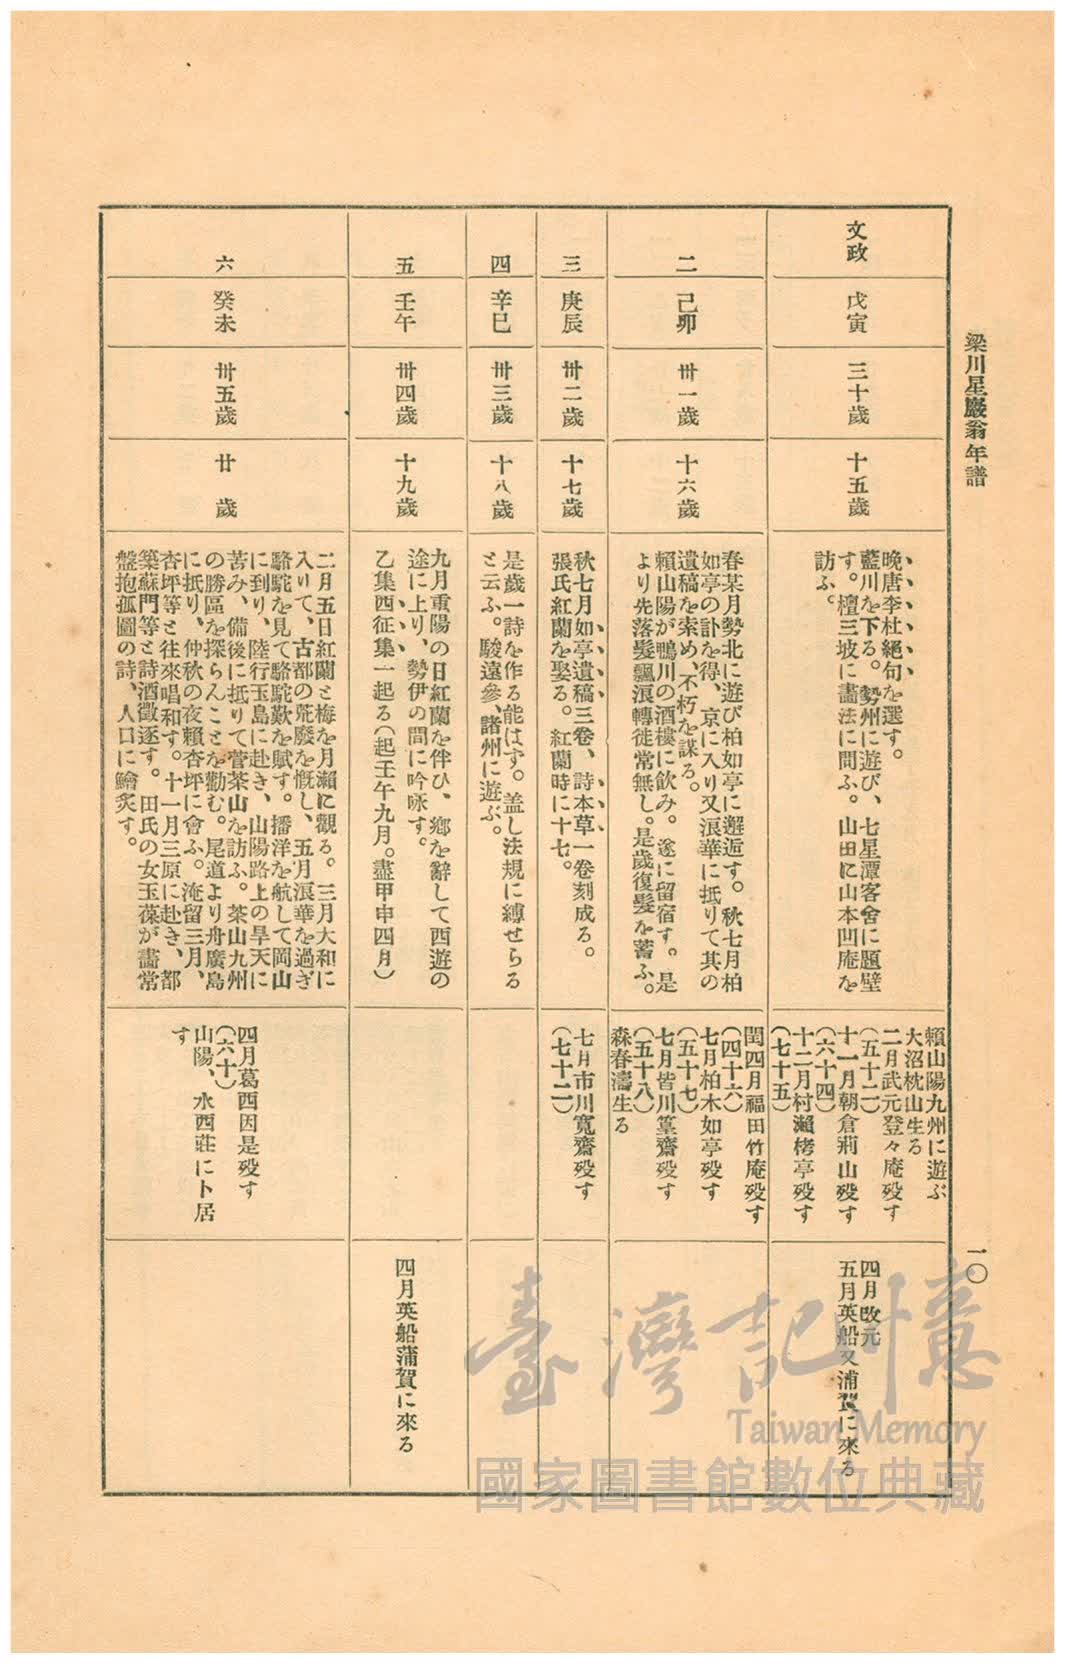 梁川星巖翁年譜
一〇
文政
戊寅
三十歲
十五歲
晚唐李杜絕句を選す。
藍川を下る。勢州に遊び、七星潭客舍に題壁
す。檀三坡に畵法に問ふ。山田に山本凹庵を
訪ふ。
賴山陽九州に遊ぶ
大沼枕山生る
二月武元登々庵歿す
(五十二)
十一月朝倉荊山歿す
(六十四)
十二月村瀨栲亭歿す
(七十五)
四月改元
五月英船又浦賀に來る
二
己卯
卅一歲
十六歲
春某月勢北に遊び柏如亭に邂逅す。秋七月柏
如亭の訃を得、京に入り又浪華に抵りて其の
遺稿を索め、不朽を謀る。
賴山陽が鴨川の酒樓に飮み。遂に留宿す。是
より先落髮飄浪轉徒常無し。是歲復髮を蓄ふ。
閏四月福田竹庵歿す
(四十六)
七月柏木如亭歿す
(五十七)
七月皆川篁齋歿す
(五十八)
森春濤生る
三
庚辰
卅二歲
十七歲
秋七月如亭遺稿三卷、詩本草一卷刻成る。
張氏紅蘭を娶る。紅蘭時に十七。
七月市川寬齋歿す
(七十二)
四
辛巳
卅三歲
十八歲
是歲一詩を作る能はず。盖し法規に縛せらる
と云ふ。駿遠參、諸州に遊ぶ。
五
壬午
卅四歲
十九歲
九月重陽の日紅蘭を伴ひ、鄉を辭して西遊の
途に上り、勢伊の間に吟咏す。
乙集西征集一起る(起壬午九月。盡甲申四月)
四月英船蒲賀に來る
六
癸未
卅五歲
廿歲
二月五日紅蘭と梅を月瀨に觀る。三月大和に
入りて、古都の荒廢を慨し、五月浪華を過ぎ
駱駝を見て駱駝歎を賦す。播洋を航して岡山
に到り、陸行玉島に赴き、山陽路上の旱天に
苦み、備後に抵りて菅茶山を訪ふ。茶山九州
の勝區を探らんことを勸む。尾道より舟廣島
に抵り、仲秋の夜賴杏坪に會ふ。淹留三月、
杏坪等と往來唱和す。十一月三原に赴き、都
築蘇門等と詩酒徵逐す。田氏の女玉葆が畵常
盤抱孤圖の詩、人口に鱠炙す。
四月葛西因是歿す
(六十)
山陽、水西莊に卜居
す
臺灣記憶
Taiwan Memory
國家圖書館數位典藏